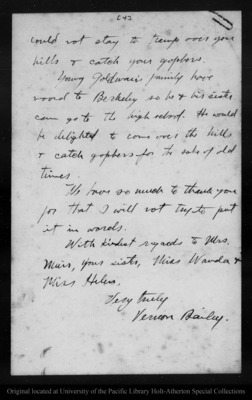 could not stay to tramp over your
hills & catch your gophers.
Young Goldman's family have
moved to Berkeley so he & his sister
can go to the high school. He would
be delighted to come over the hills
& catch gophers for the sake of old
times.
We have so much to thank you
for that I will not try to put
it in words.
With kindest regards to Mrs.
Muir, your sister, Miss Wanda &
Miss Helen.
Very truly
Vernon Bailey.
Original located at University of the Pacific Library Holt-Atherton Special Collections